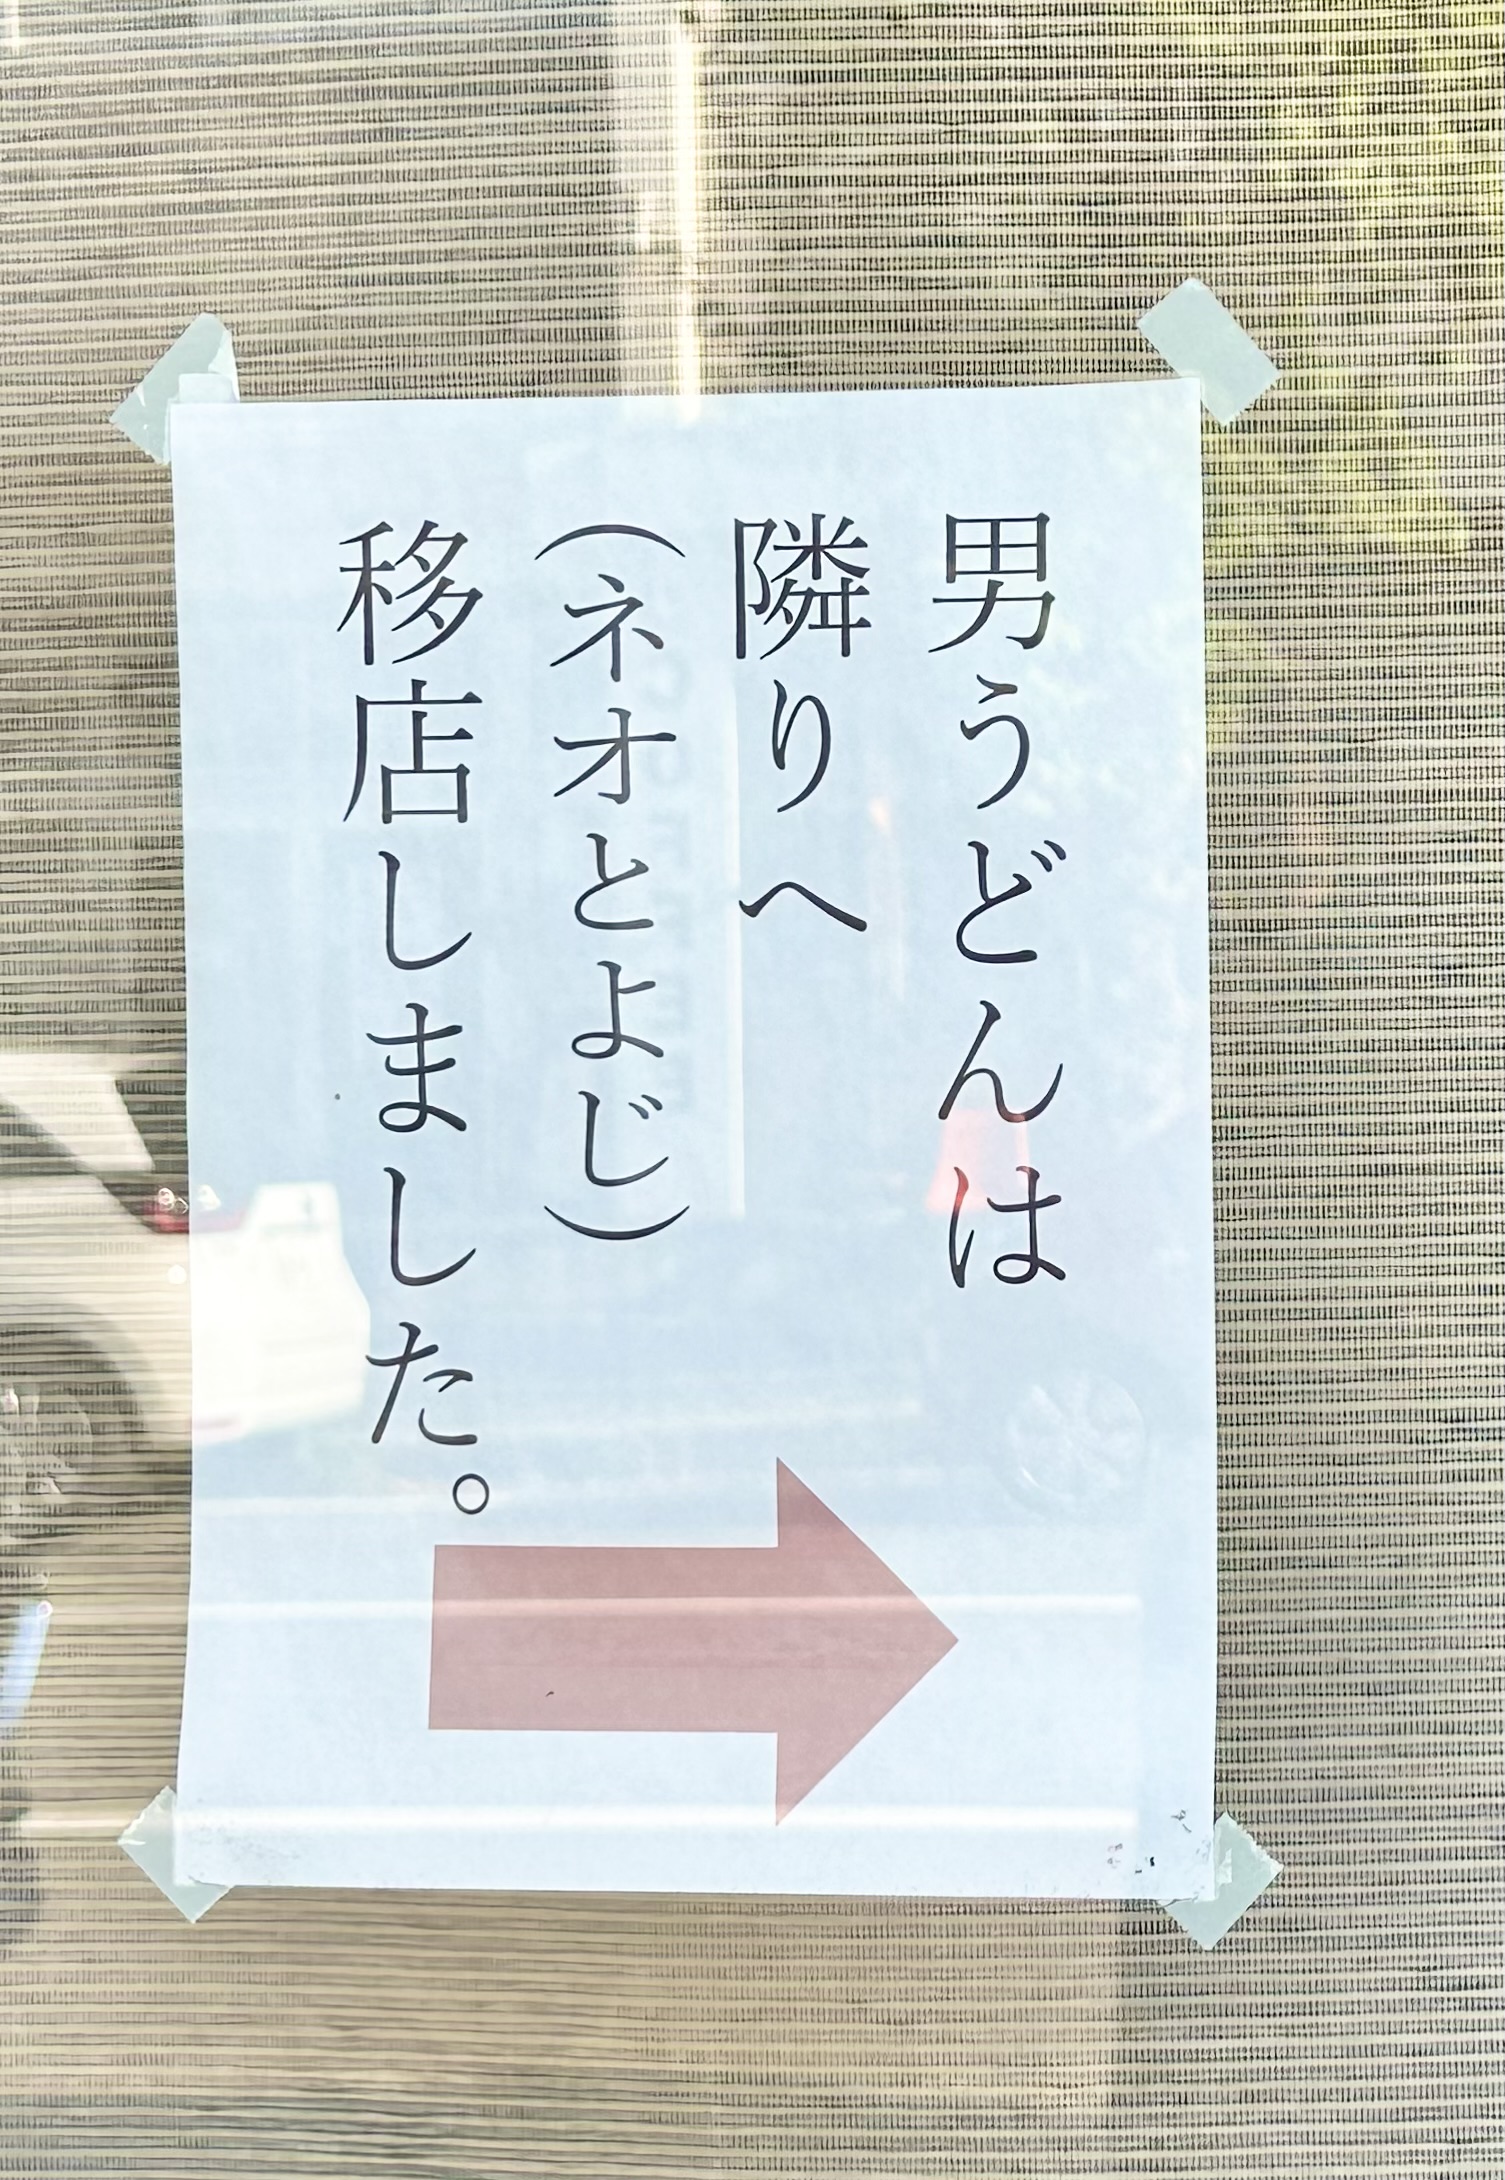 男うどんは
隣りへ
（ネオとよじ）
移店しました。